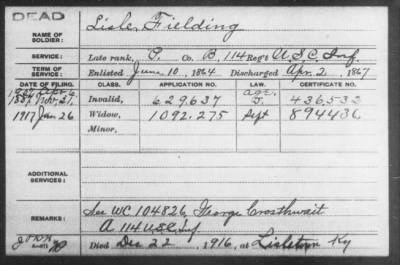 DEAD
NAME OF SOLDIER: Lisle, Fielding
SERVICE: Late rank, P. Co. B, 114 Reg't U.S.C. Inf.
TERM OF SERVICE: Enlisted June 10, 1864 Discharged Apr. 2, 1867
DATE OF FILING. CLASS. APPLICATION NO. LAW. CERTIFICATE NO.
Nov. 27, Invalid, 629637 J. 436532
1917 Jan 26 Widow, 1092.275 Sept 894436
Minor,
ADDITIONAL SERVICES:
REMARKS: See WC 104826, George Crosthwait
A 114 U.S.C. Inf
Died Dec 22, 1916, at Lisletown Ky